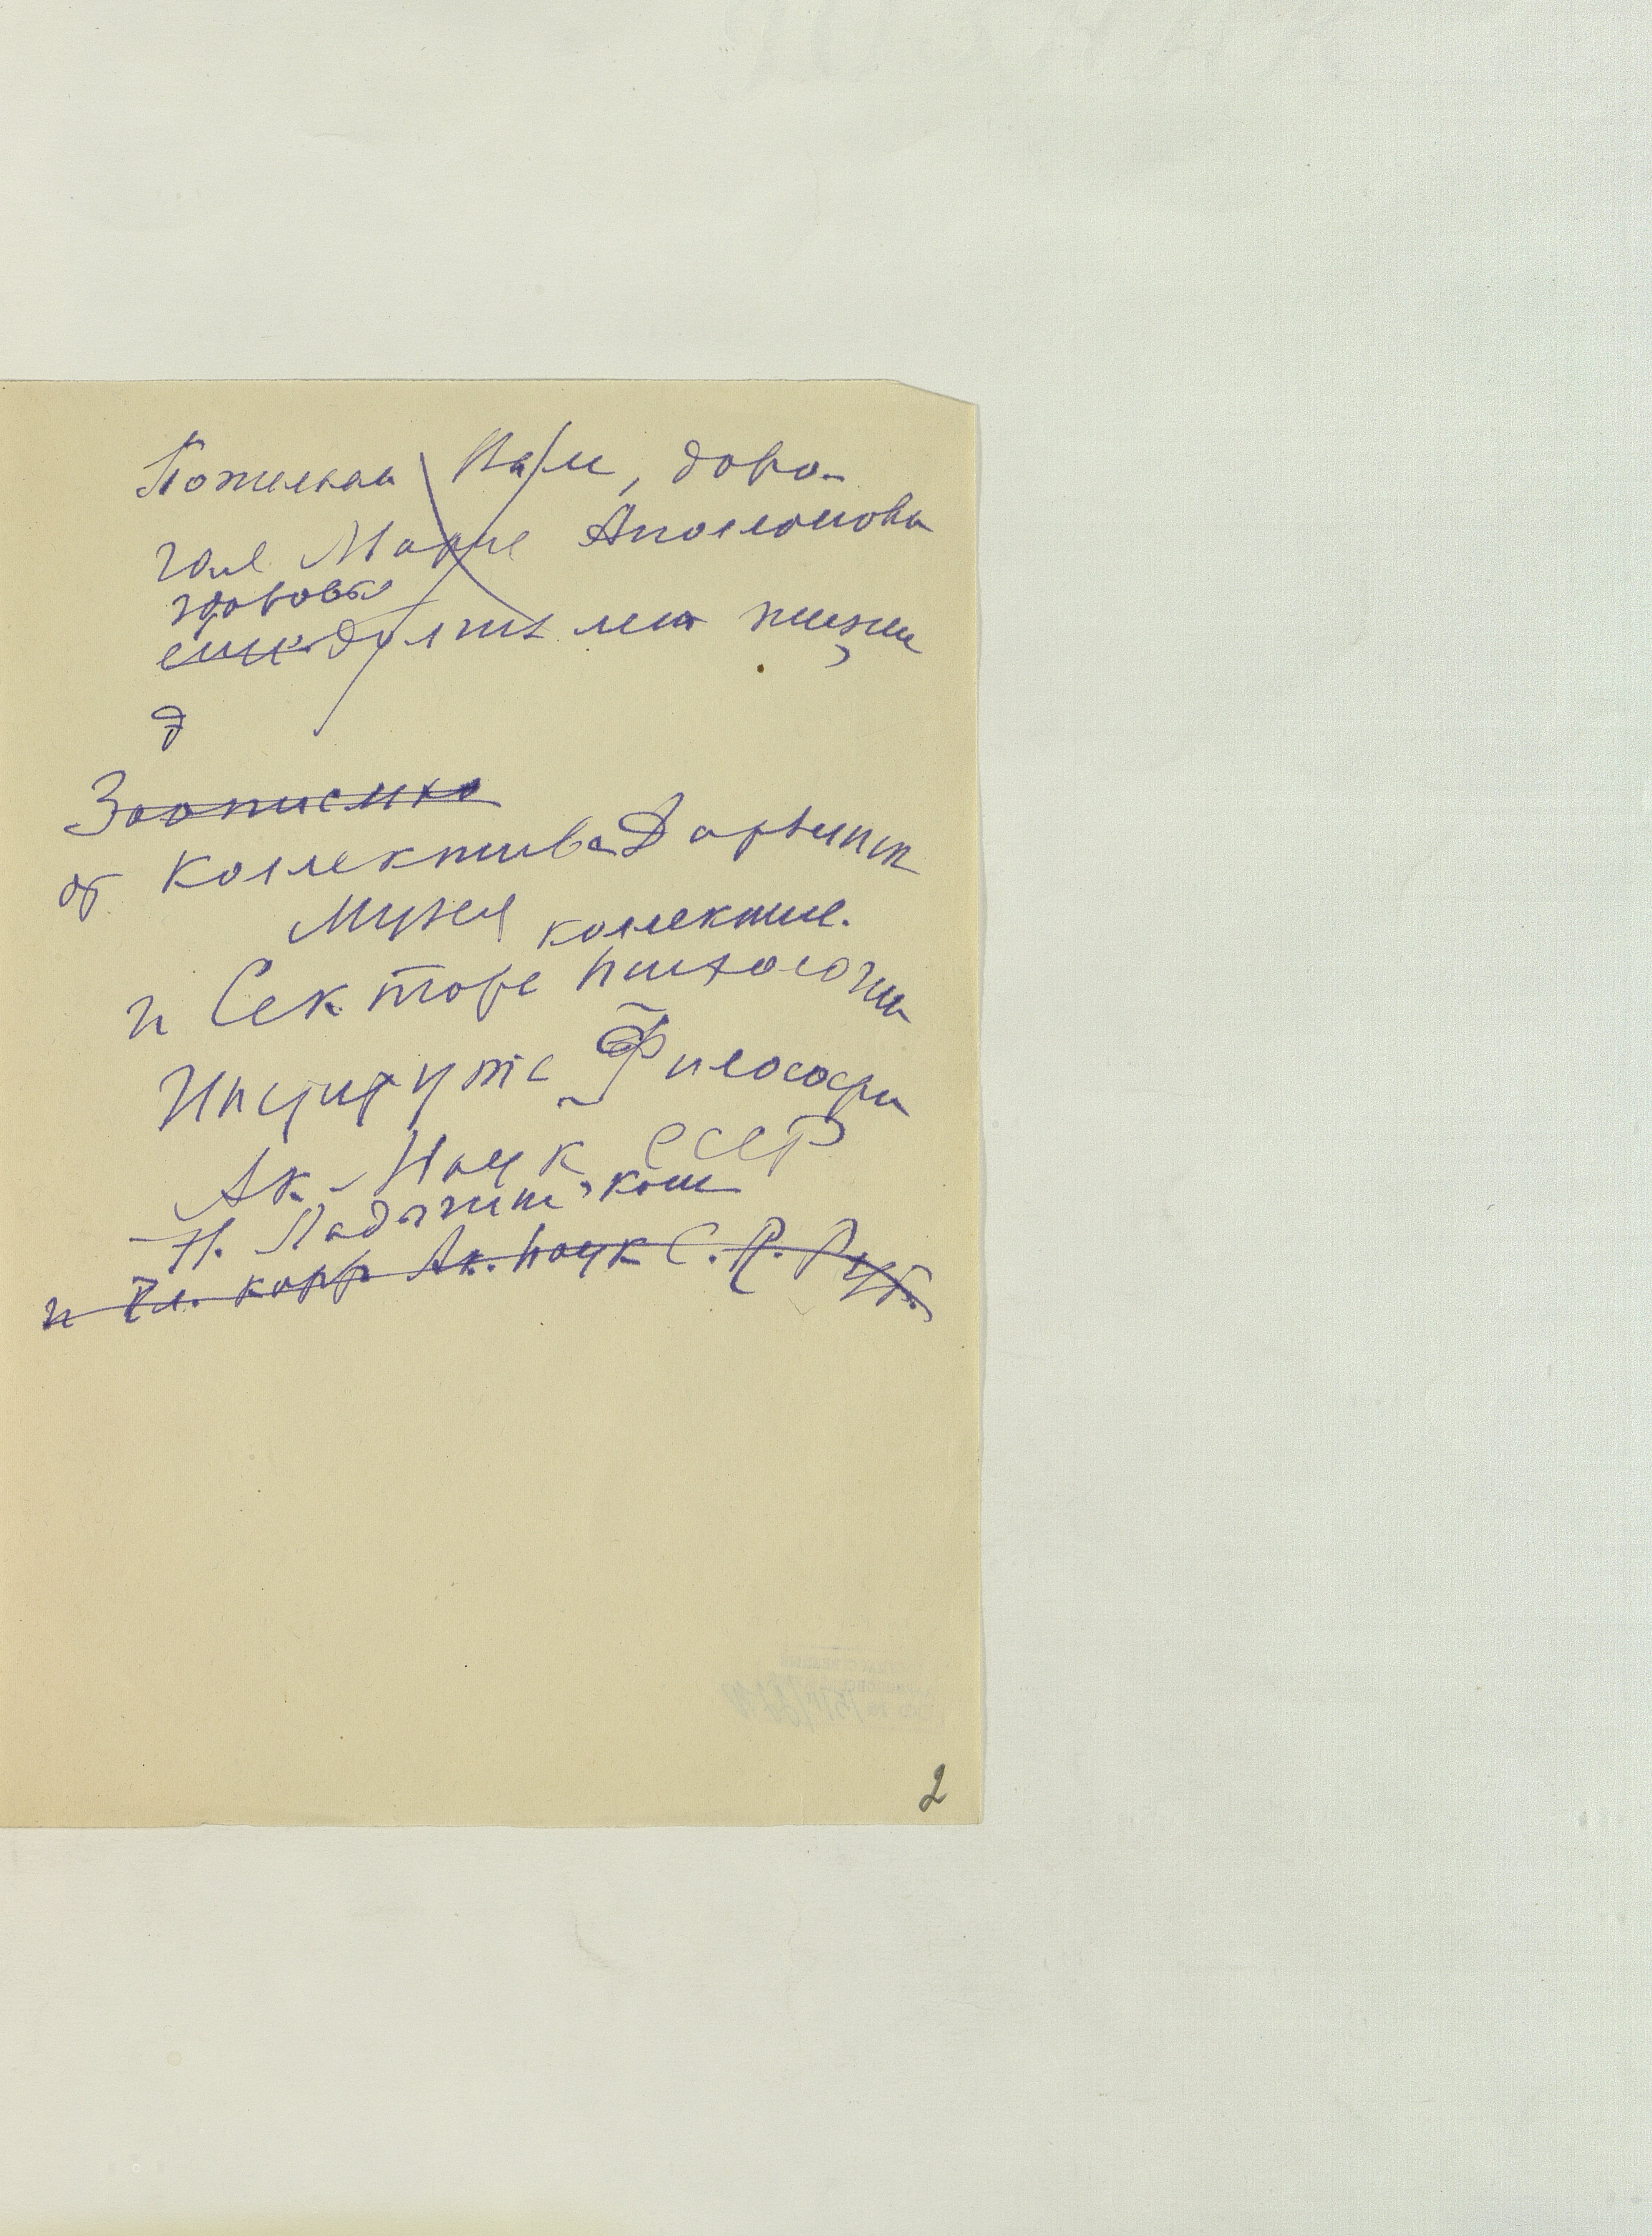 Пожелаем Вам, доро-
гая Мария Аполлоновна
здоровья
еще долгих лет жизни,
Зоопсихо
от Коллектива Дарвинск
Музея коллектив.
и Сектора психологии
Института Философии
Ак. Наук СССР
Н. Ладыгина-Котс
и Чл. корр Ак. наук С. Л. Руб.
2